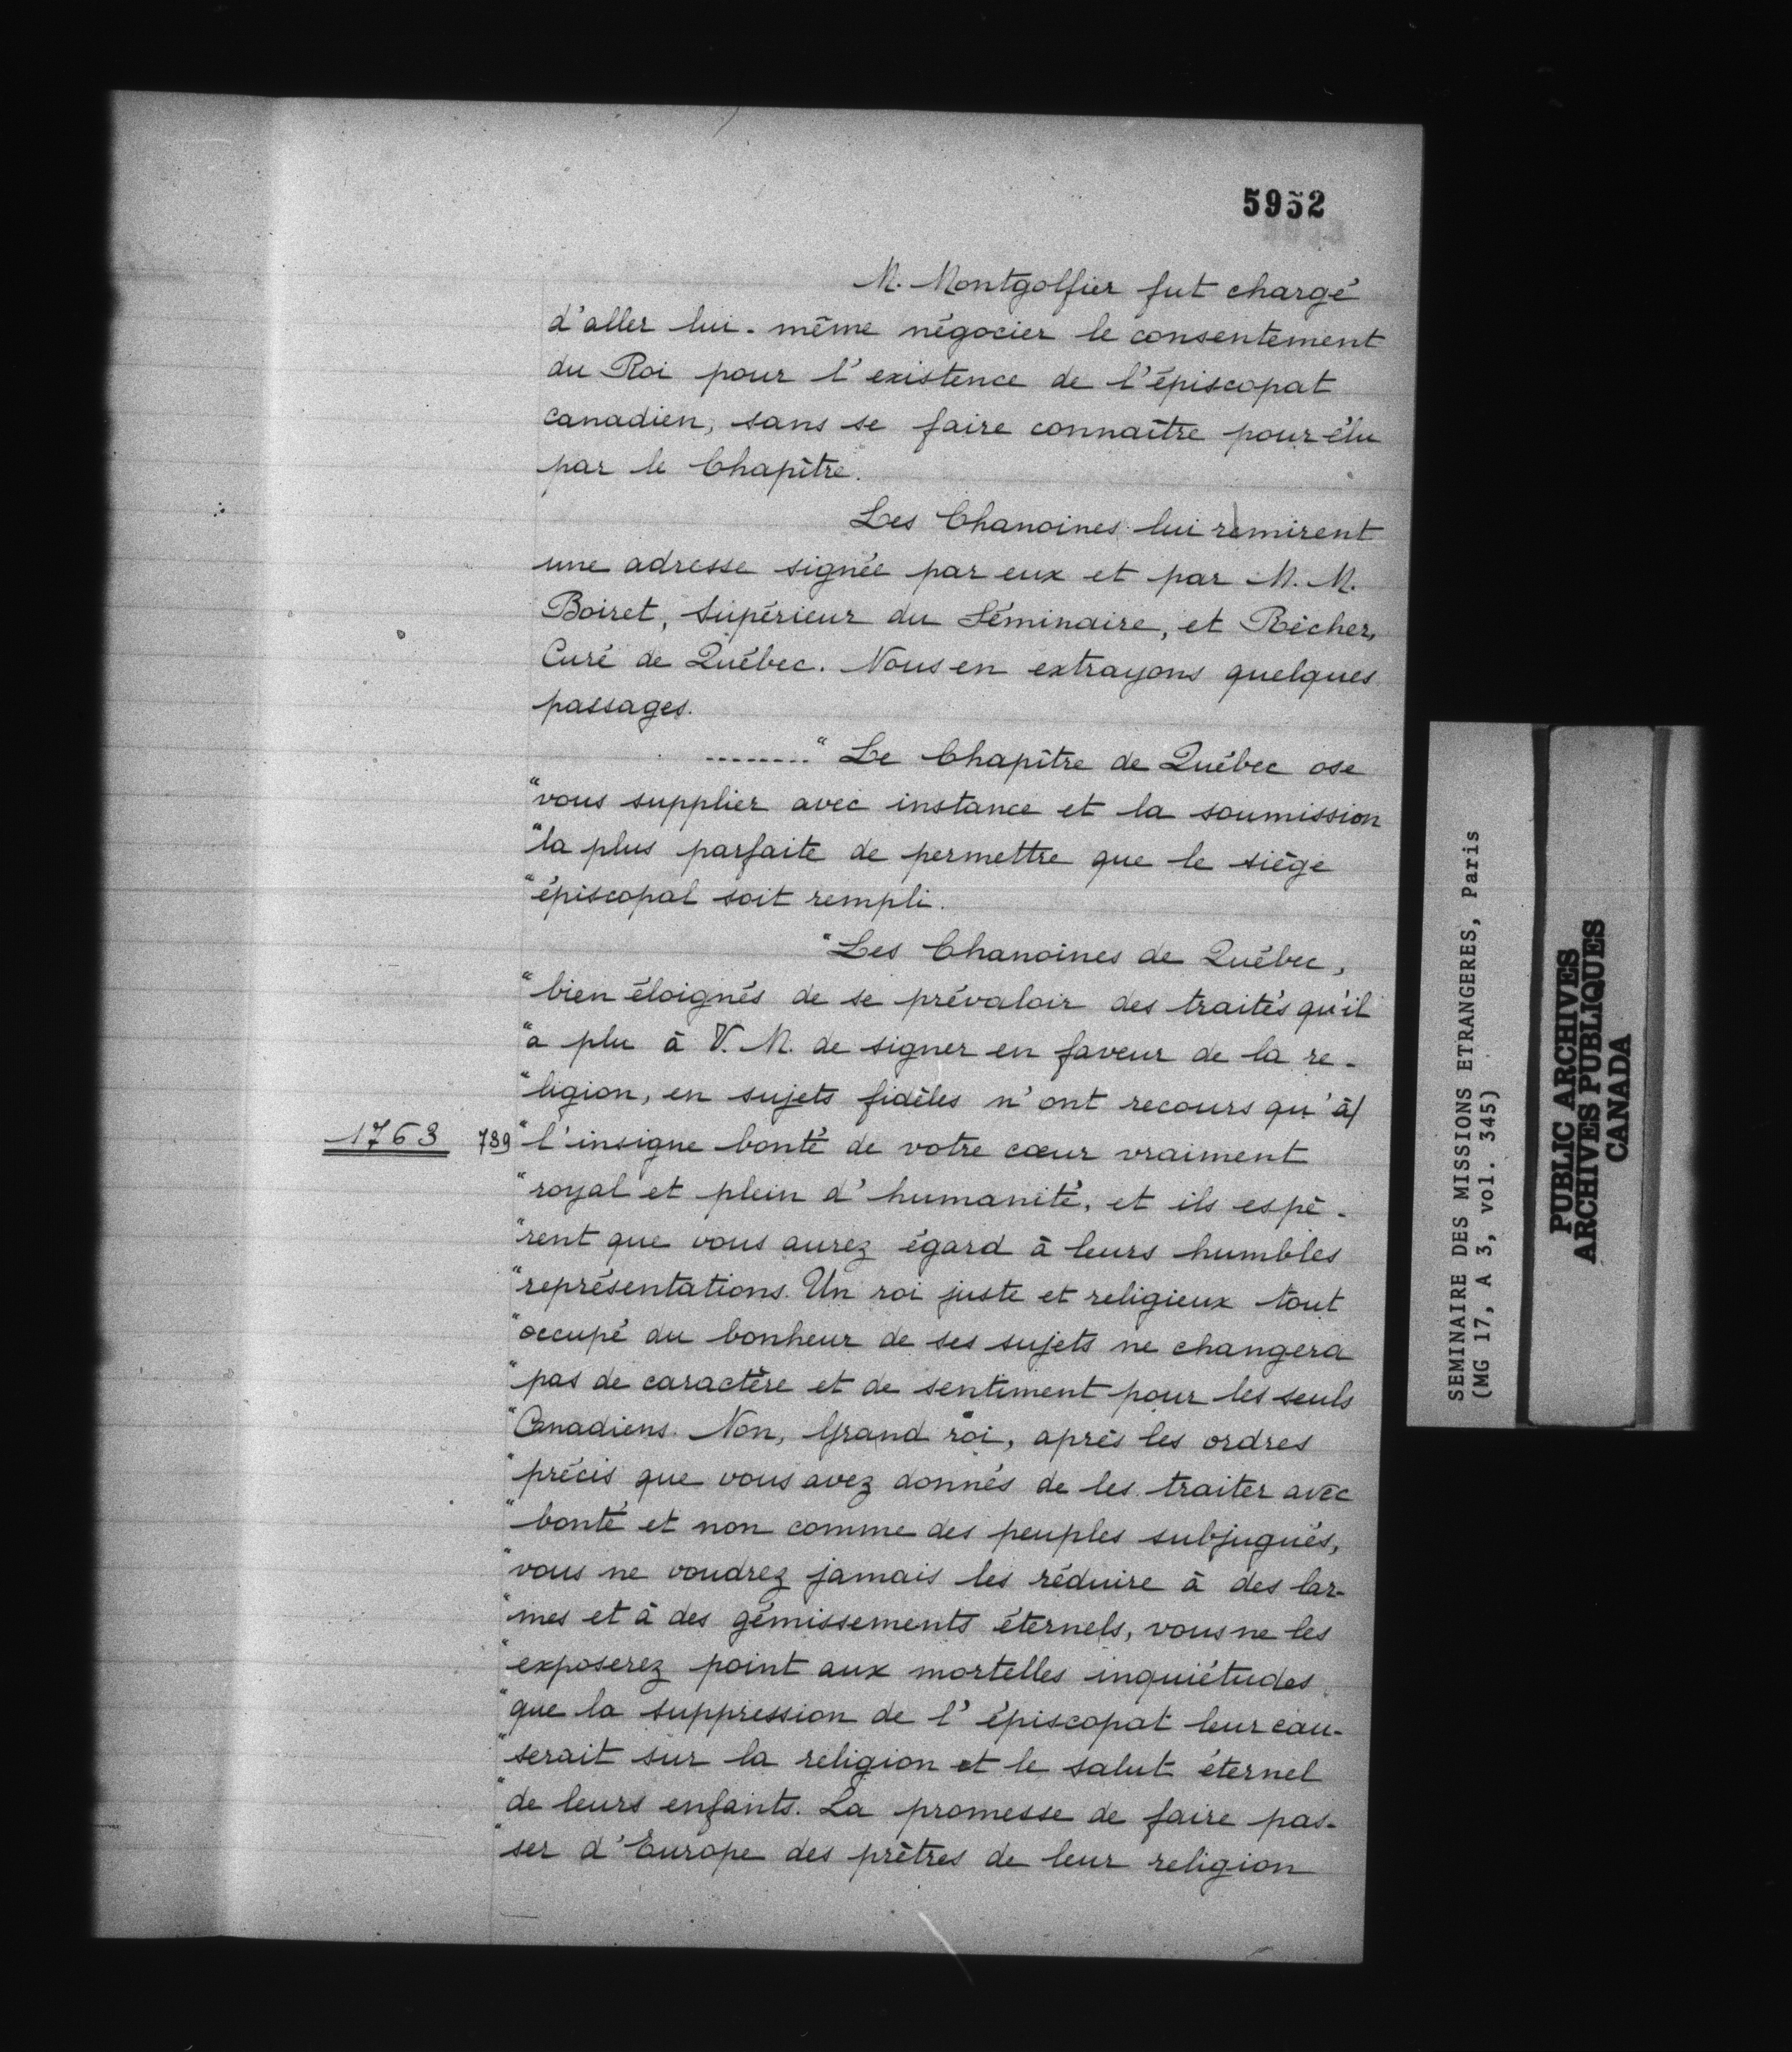 5952
M. Montgolfier fut chargé
d'aller lui-même négocier le consentement
du Roi pour l'existence de l'épiscopat
canadien, sans se faire connaître pour élu
par le Chapître.
Les Chanoines lui remirent
une adresse signée par eux et par M. M.
Boiret, Supérieur du Séminaire, et Récher,
Curé de Québec. Nous en extrayons quelques
passages.
........ "Le Chapître de Québec ose
"vous supplier avec instance et la soumission
"la plus parfaite de permettre que le siège
"épiscopal soit rempli.
"Les Chanoines de Québec,
"bien éloignés de se prévaloir des traités qu'il
"a plu à V. M. de signer en faveur de la re-
"ligion, en sujets fidèles n'ont recours qu'à/
1763 739 "l'insigne bonté de votre cœur vraiment
"royal et plein d'humanité, et ils espè-
"rent que vous aurez égard à leurs humbles
"représentations. Un roi juste et religieux tout
"occupé du bonheur de ses sujets ne changera
"pas de caractère et de sentiment pour les seuls
"Canadiens. Non, Grand roi, après les ordres
"précis que vous avez donnés de les traiter avec
"bonté et non comme des peuples subjugués,
"vous ne voudrez jamais les réduire à des lar-
"mes et à des gémissements éternels, vous ne les
"exposerez point aux mortelles inquiétudes
"que la suppression de l'épiscopat leur cau-
"serait sur la religion et le salut éternel
"de leurs enfants. La promesse de faire pas-
"ser d'Europe des prêtres de leur religion
SEMINAIRE DES MISSIONS ETRANGERES, Paris
(MG 17, A 3, vol. 345)
PUBLIC ARCHIVES
ARCHIVES PUBLIQUES
CANADA